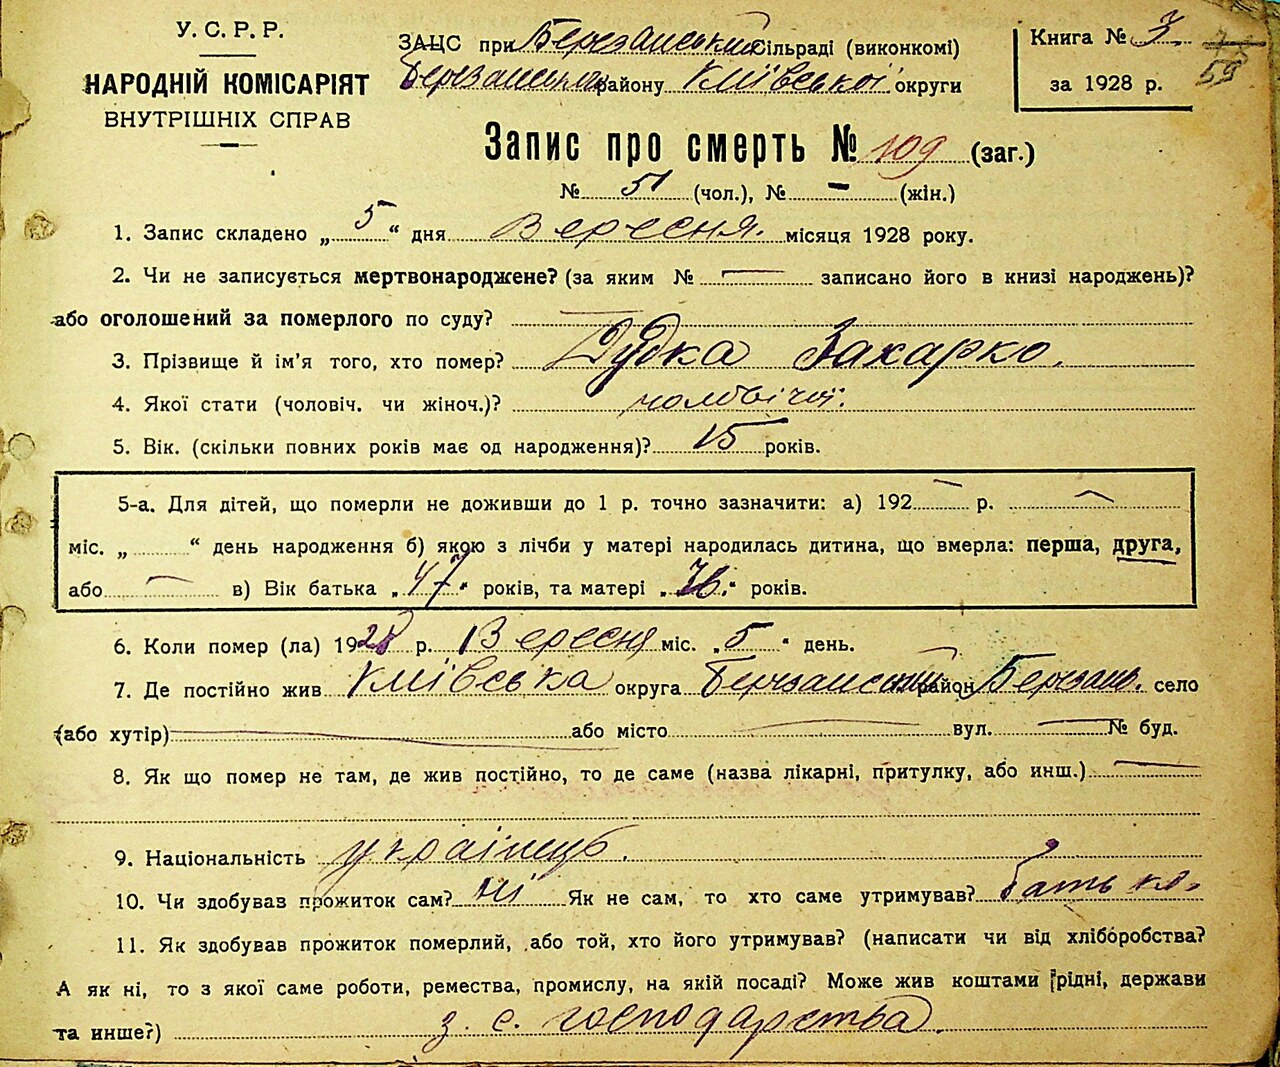 У. С. Р. Р.
НАРОДНІЙ КОМІСАРІЯТ
ВНУТРІШНІХ СПРАВ
ЗАЦС при Березанський сільраді (виконкомі)
Березанського району Київської округи
Книга № 3
за 1928 р.
59
Запис про смерть № 109 (заг.)
№ 51 (чол.), № – (жін.)
1. Запис складено „ 5 “ дня Вересня. місяця 1928 року.
2. Чи не записується мертвонароджене? (за яким № — записано його в книзі народжень)?
або оголошений за померлого по суду? —
3. Прізвище й ім'я того, хто помер? Дудка Захарко.
4. Якої стати (чоловіч. чи жіноч.)? чоловічої.
5. Вік. (скільки повних років має од народження)? 15 років.
5-а. Для дітей, що померли не доживши до 1 р. точно зазначити: а) 192 — р. —
міс. „ “ день народження б) якою з лічби у матері народилась дитина, що вмерла: перша, друга,
або — в) Вік батька „ 47 “ років, та матері „ 36. “ років.
6. Коли помер (ла) 1928 р. Вересня міс. „ 5 “ день.
7. Де постійно жив Київська округа Березанський район Березань. село
(або хутір) — або місто — вул. — № буд.
8. Як що помер не там, де жив постійно, то де саме (назва лікарні, притулку, або инш.) —
9. Національність українець.
10. Чи здобував прожиток сам? Ні Як не сам, то хто саме утримував? батько.
11. Як здобував прожиток померлий, або той, хто його утримував? (написати чи від хліборобства?
А як ні, то з якої саме роботи, ремества, промислу, на якій посаді? Може жив коштами рідні, держави
та инше?) з. с. господарства.